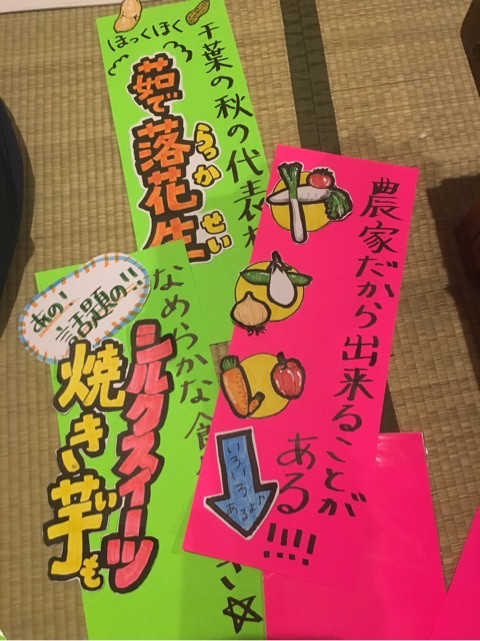 ほっくほく
千葉の秋の代表
茹で落花生
らっかせい
農家だから出来ることが
ある!!!!
いろいろ
あるよ
あの!
話題の!!
なめらかな食
シルクスイーツ
焼き芋も
い
☆